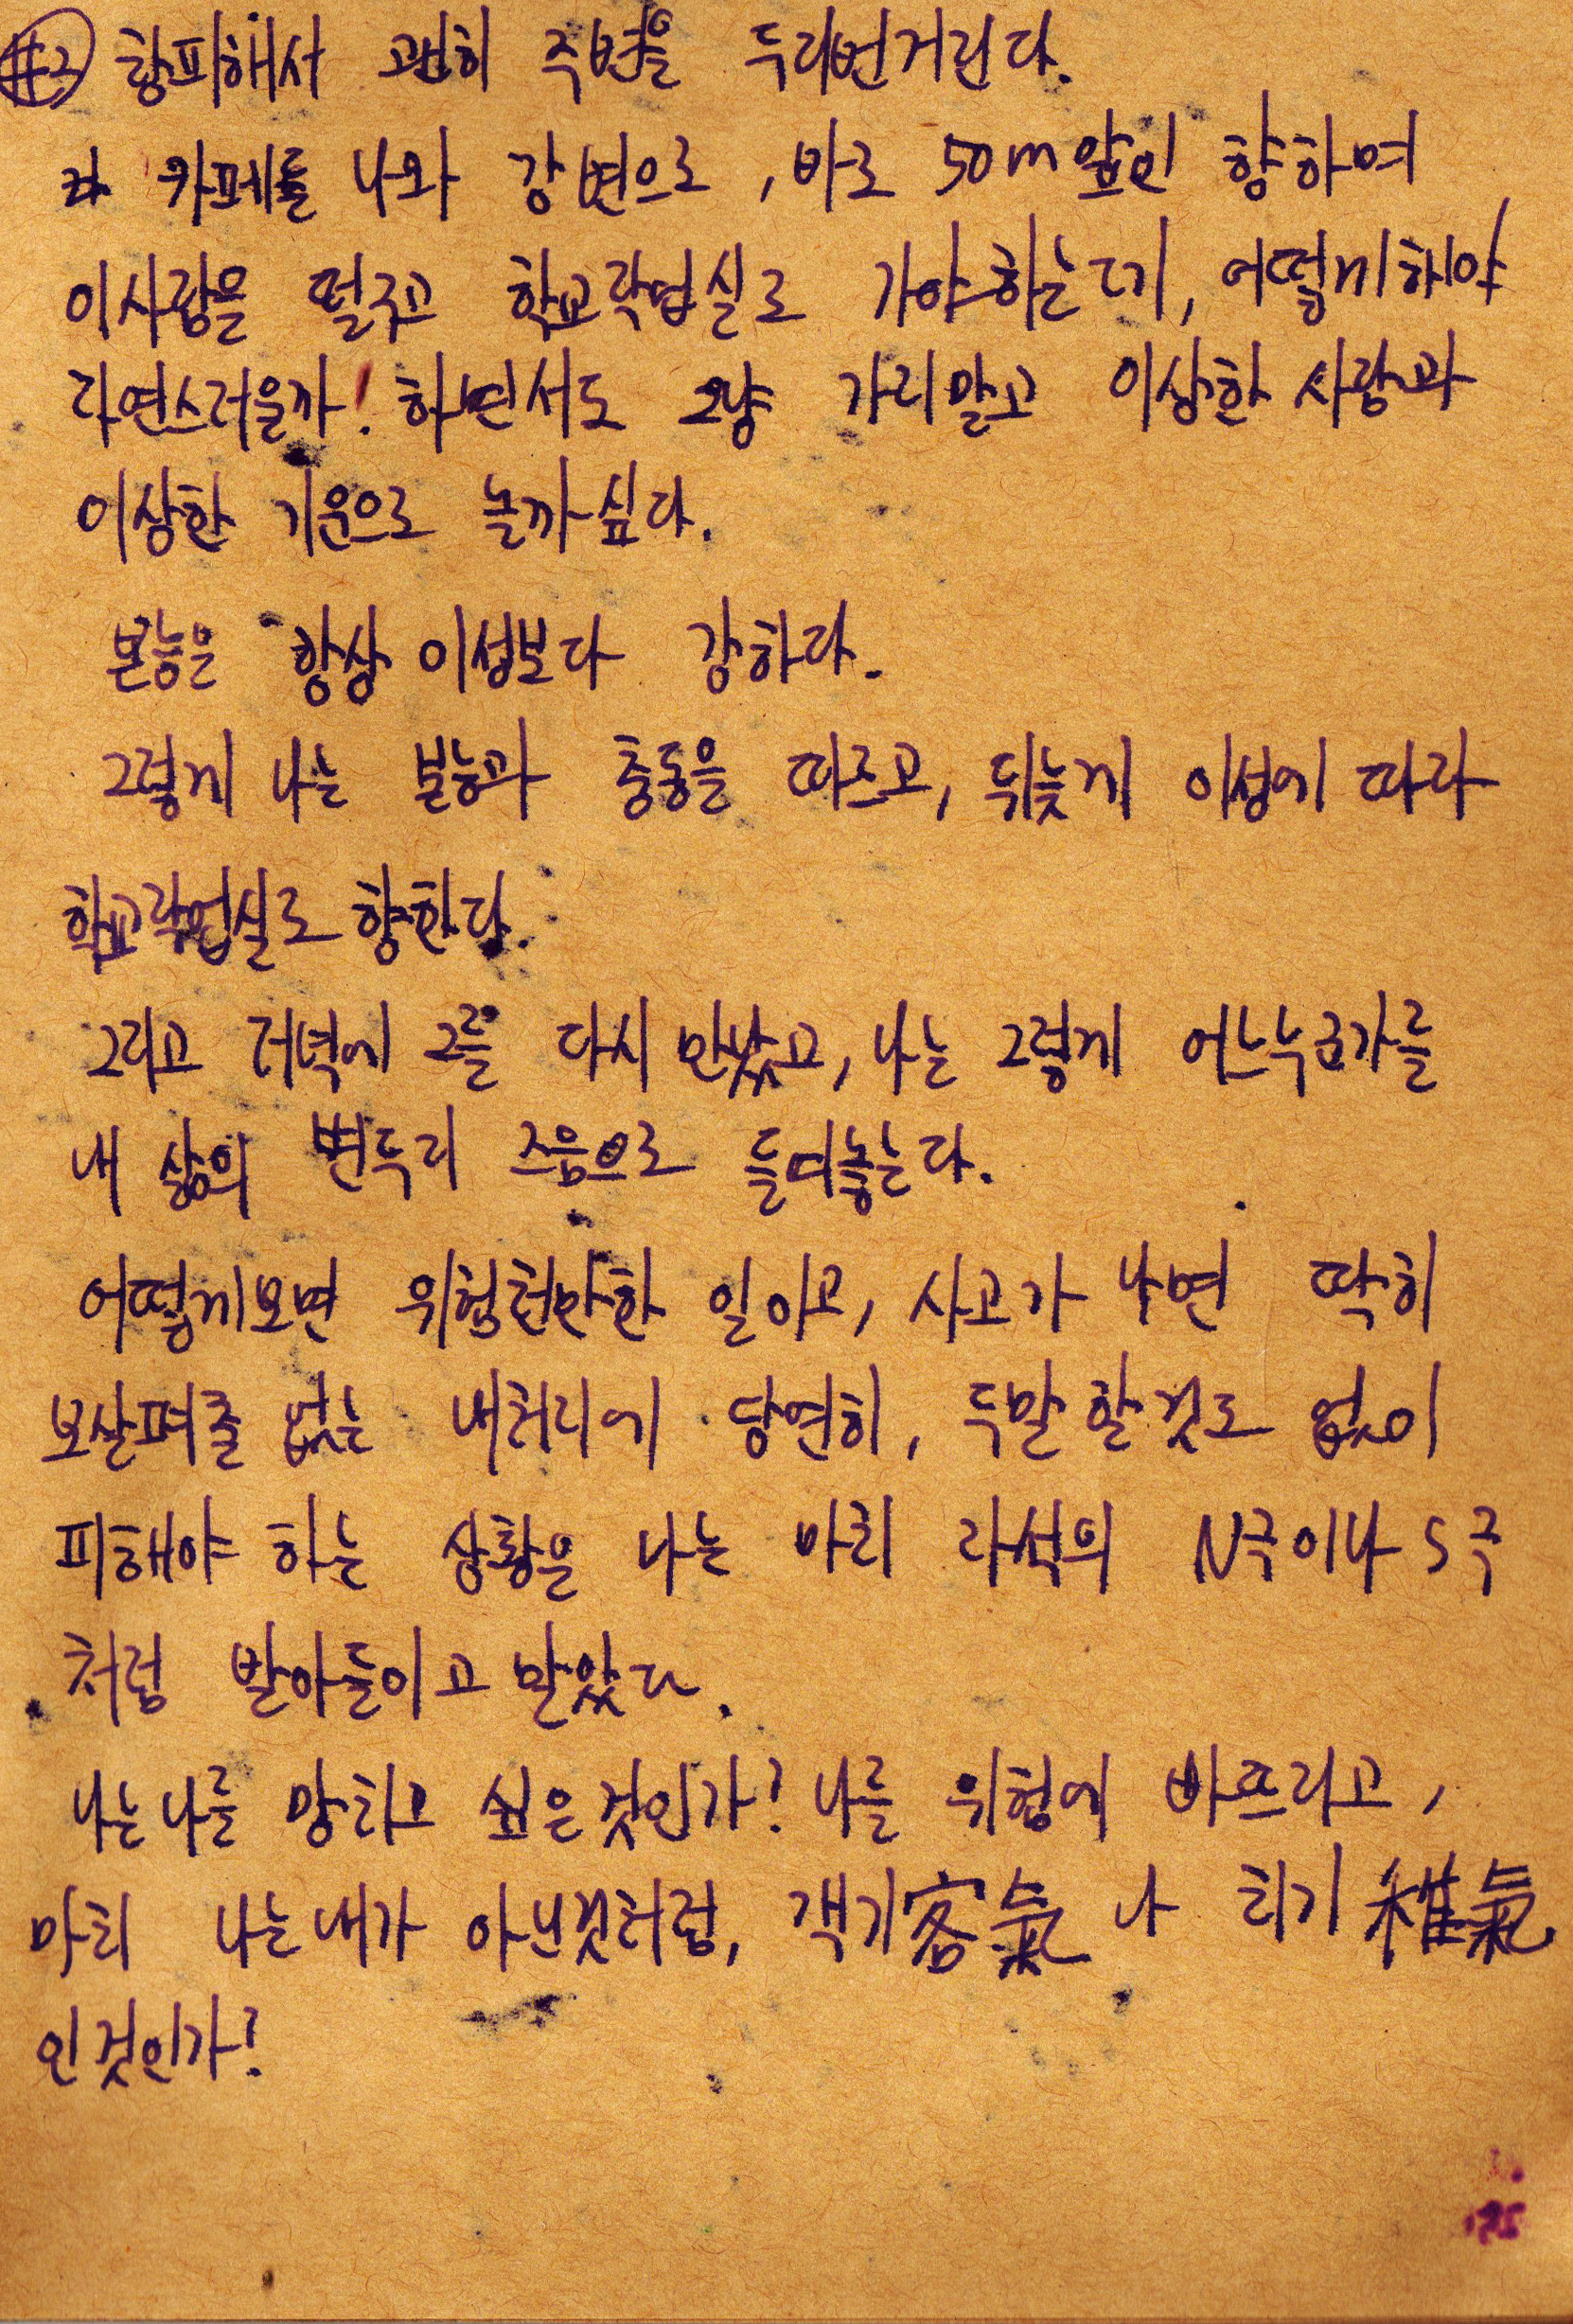 #3 창피해서 괜히 주변을 두리번거린다.
카페를 나와 강변으로, 바로 50m앞인 향하며
이사람을 떨구고 학교작업실로 가야하는데, 어떻게해야
자연스러울까! 하면서도 그냥 가지말고 이상한 사람과
이상한 기운으로 놀까싶다.
본능은 항상 이성보다 강하다.
그렇게 나는 본능과 충동을 따르고, 뒤늦게 이성에 따라
학교작업실로 향한다.
그리고 저녁에 그를 다시 만났고, 나는 그렇게 어느누군가를
내 삶의 변두리 즈음으로 들여놓는다.
어떻게보면 위험천만한 일이고, 사고가 나면 딱히
보살펴줄 없는 내처지에 당연히, 두말할것도 없이
피해야 하는 상황을 나는 마치 자석의 N극이나 S극
처럼 받아들이고 말았다.
나는나를 망치고 싶은것인가? 나를 위험에 빠뜨리고,
마치 나는내가 아닌것처럼, 객기客氣나 치기稚氣
인것인가?